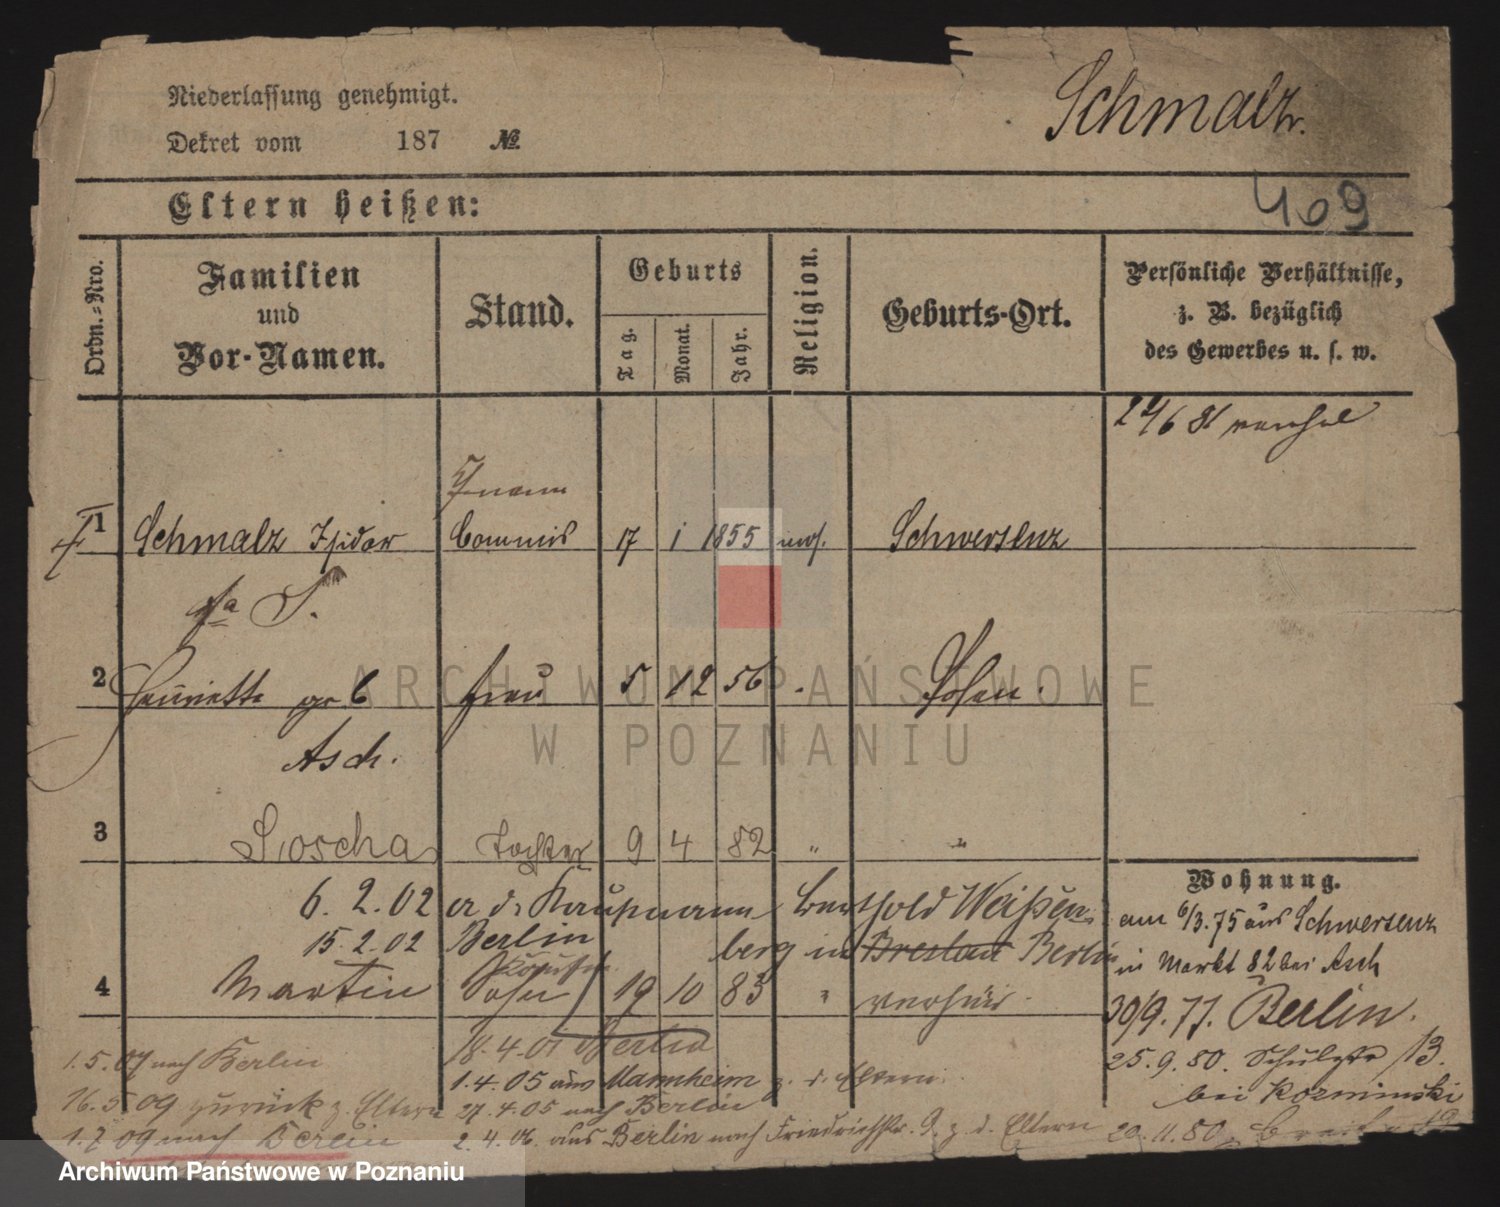 Niederlassung genehmigt.
Dekret vom 187 №
Schmalz.
Eltern heißen:
409
Ordn.-Nro.
Familien
und
Vor-Namen.
Stand.
Geburts
Tag.
Monat.
Jahr.
Religion.
Geburts-Ort.
Persönliche Verhältnisse,
z. B. bezüglich
des Gewerbes u. s. w.
24/6 81
1 Schmalz Isidor Commis 17 1 1855 mos. Schwersenz
2 Henriette geb Frau 5 12 56 Posen.
Asch.
3 Tochter 9 4 82 " "
Wohnung.
6. 2. 02 a. d. Kaufmann Berthold Weißen
am 6/3.75 aus Schwersenz
15. 2. 02 Berlin
berg in Breslau Berlin
in Markt 82 bei Asch
4 Martin Sohn 19 10 83 "
30/9. 77. Berlin.
18. 4. 01 Berlin
1. 5. 07 nach Berlin
25. 9. 80. Schulstr 13.
1. 4. 05 aus Mannheim z. d. Eltern.
bei Kozminski
16. 5 09 zurück z. Eltern
27. 4. 05 nach Berlin
1. 7 09 nach Berlin
2. 4. 06. aus Berlin nach Friedrichstr. 9. z. d. Eltern
20. 11. 80.
ARCHIWUM PAŃSTWOWE
W POZNANIU
Archiwum Państwowe w Poznaniu